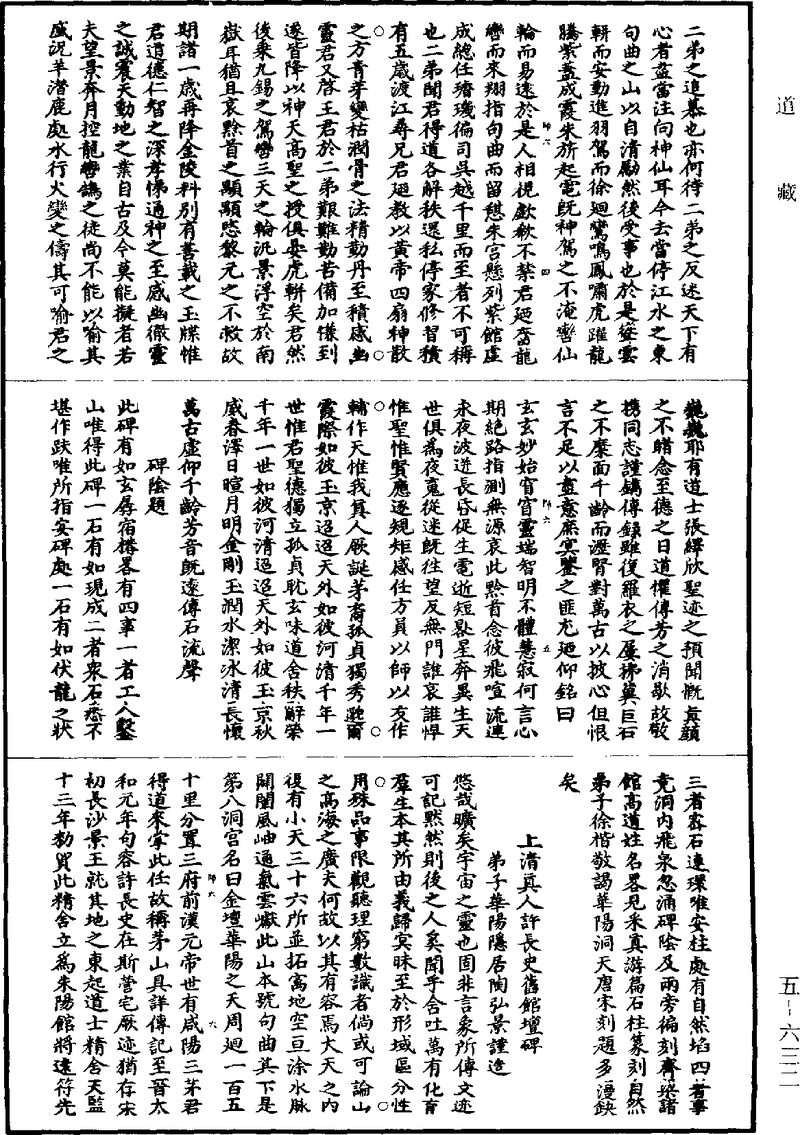 道藏
二弟之追慕也亦何待二弟之反迷天下有
心者盡當注向神仙耳今去當停江水之東
句曲之山以自清勵然後受事也於是登雲
軿而安動進羽駕而徐迴鸞鳴鳳嘯虎躍龍
騰紫蓋成霞朱旂起電既神駕之不淹轡仙
輪而易遠於是人相視歔欷不禁君廼奮龍
轡而來翔指句曲而留憇朱宮懸列紫館虛
成總任璿璣徧司吳越千里而至者不可稱
也二弟聞君得道各解秩還私停家修習積
有五歲渡江尋兄君廼教以黃帝四扇神散
之方青芽變枯潤骨之法精勤丹至積感幽
靈君又啓王君於二弟艱難勤苦備加懽到
遂皆降以神天高聖之授俱晏虎軿矣君然
後乘九錫之駕轡三天之輪汎景浮空於南
嶽耳猶且哀黔首之顒顒愍黎元之不救故
期諸一歲再降金陵料別有善載之玉牒惟
君道德仁智之深孝悌通神之至感幽徹靈
之誠震天動地之業自古及今莫能擬者若
夫望景奔月控龍轡鵠之徒尚不能以喻其
盛況羊潛鹿處水行火變之儔其可喻君之
巍巍耶有道士張繹欣聖迹之預聞慨真顏
之不睹念至德之日道懼傳芳之消歇故敬
攜同志謹鐫傳錄雖復羅衣之屢拂冀巨石
之不糜面千齡而瀝腎對萬古以披心但恨
言不足以盡意庶冥鑒之匪尤廼仰銘曰
玄玄妙始窅窅靈端智明不體慧寂何言心
期絶路指測無源哀此黔首念彼飛喧流連
永夜波逆長昏促生電逝短晷星奔異生天
世俱為夜䰟從迷既往望反無門誰哀誰悍
惟聖惟賢應逐規矩感任方員以師以友作
輔作天惟我真人厥誕茅裔孤貞獨秀逈爾
霞際如彼玉京迢迢天外如彼河清千年一
世惟君聖德獨立孤貞耽玄味道舍秩辭榮
千年一世如彼河清迢迢天外如彼玉京秋
威春澤日暄月明金剛玉潤水潔冰清長懷
萬古虛仰千齡芳音既遠傳石流聲
碑陰題
此碑有如玄辱宿捲畧有四事一者工人鑿
山唯得此碑一石有如現成二者衆石悉不
堪作趺唯所指安碑處一石有如伏龍之狀
三者密石連環唯安柱處有自然培四者事
竟洞内飛泉忽涌碑陰及兩旁徧刻齊梁諸
館高道姓名畧見釆真游篇石柱篆刻自然
弟子徐楷敬謁華陽洞天唐宋刻題多漫缺
矣
上清真人許長史舊館壇碑
弟子華陽隱居陶弘景謹造
悠哉曠矣宇宙之靈也固非言象所傳文迹
可記黙然則後之人奚聞乎含吐萬有化育
羣生本其所由義歸冥昧至於形域區分性
用殊品事限觀聽理窮數識者倘或可論山
之高海之廣夫何故以其有容焉大天之内
復有小天三十六所並拓寓地空亘涂水脉
開闡風岫通氣雲巘此山本號句曲其下是
第八洞宮名曰金壇華陽之天周廻一百五
十里分置三府前漢元帝世有咸陽三茅君
得道來掌此任故稱茅山具詳傳記至晉太
和元年句容許長史在斯營宅厥迹猶存宋
初長沙景王就其地之東起道士精舍天監
十三年勑貿此精舍立爲朱陽館將遠符先
五-六三二